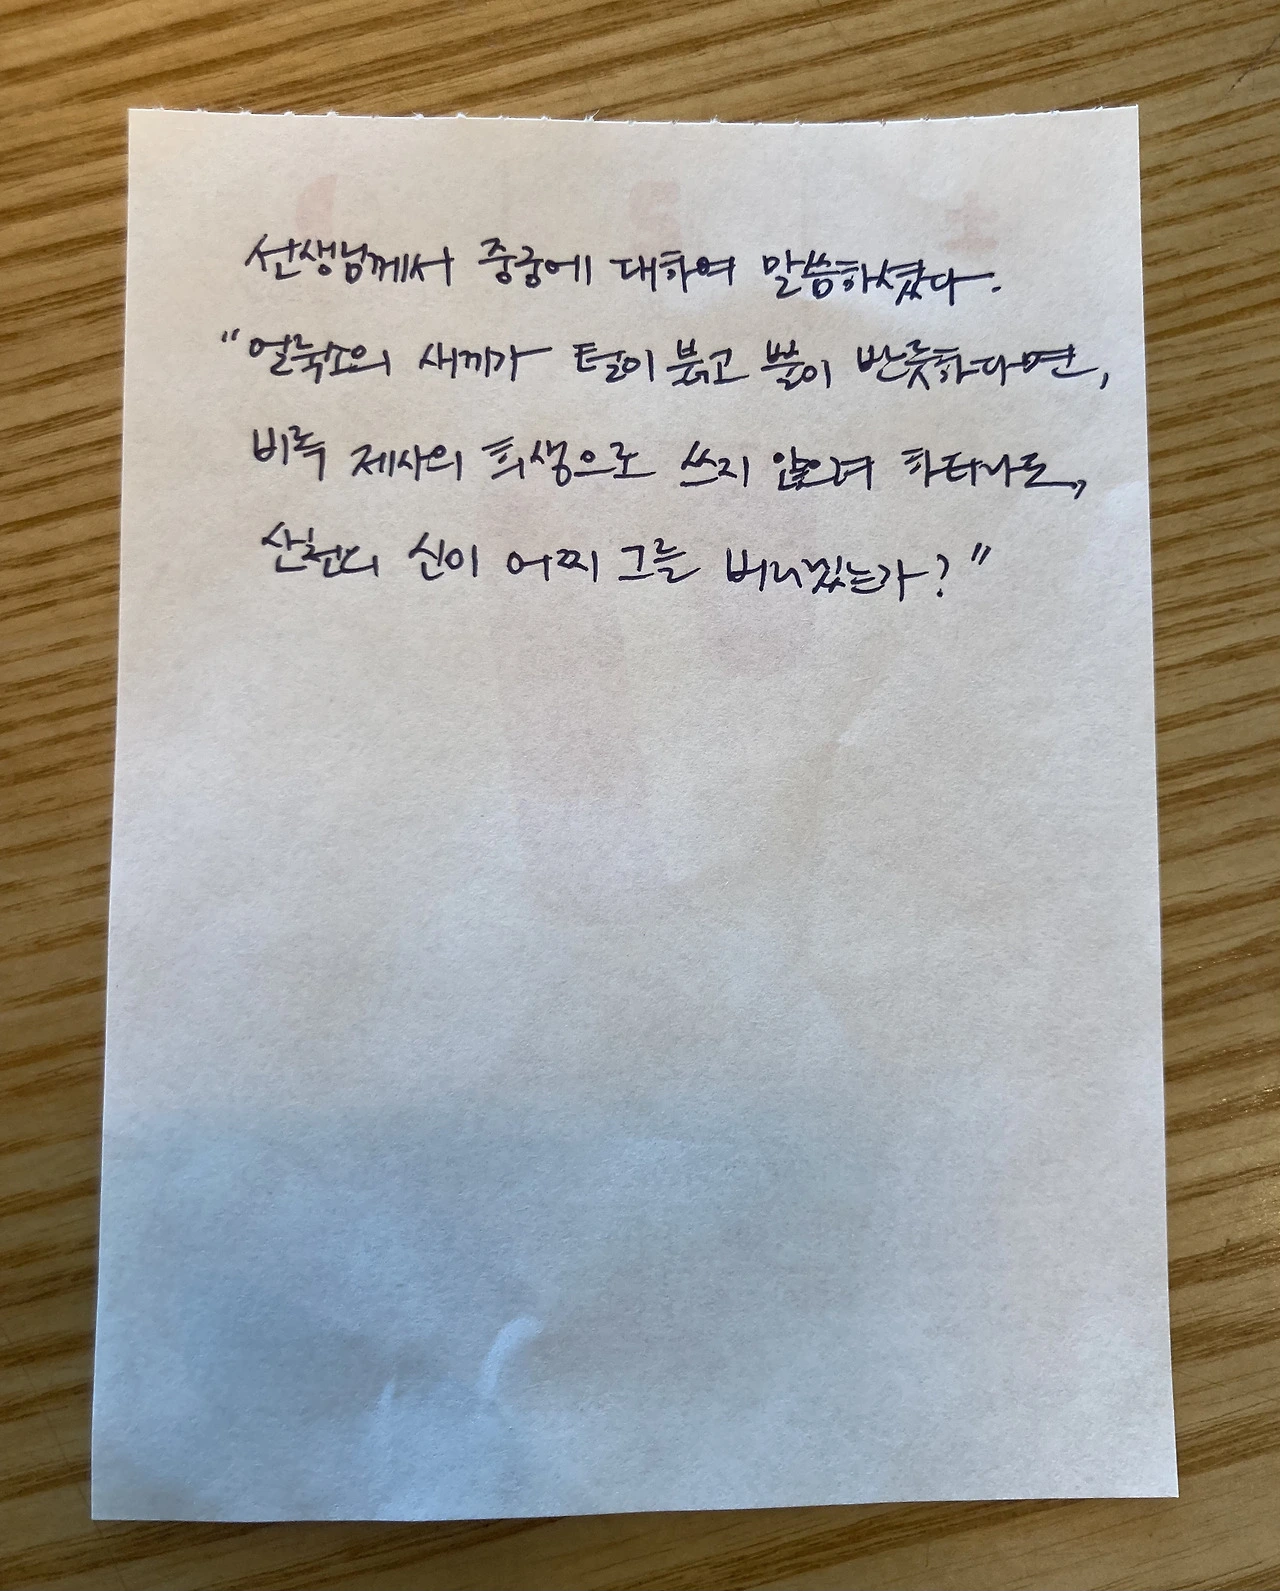 선생님께서 중궁에 대하여 말씀하셨다.
"얼룩소의 새끼가 털이 붉고 뿔이 반듯하다면,
비록 제사의 희생으로 쓰지 않으려 하더라도,
산천의 신이 어찌 그를 버리겠는가?"